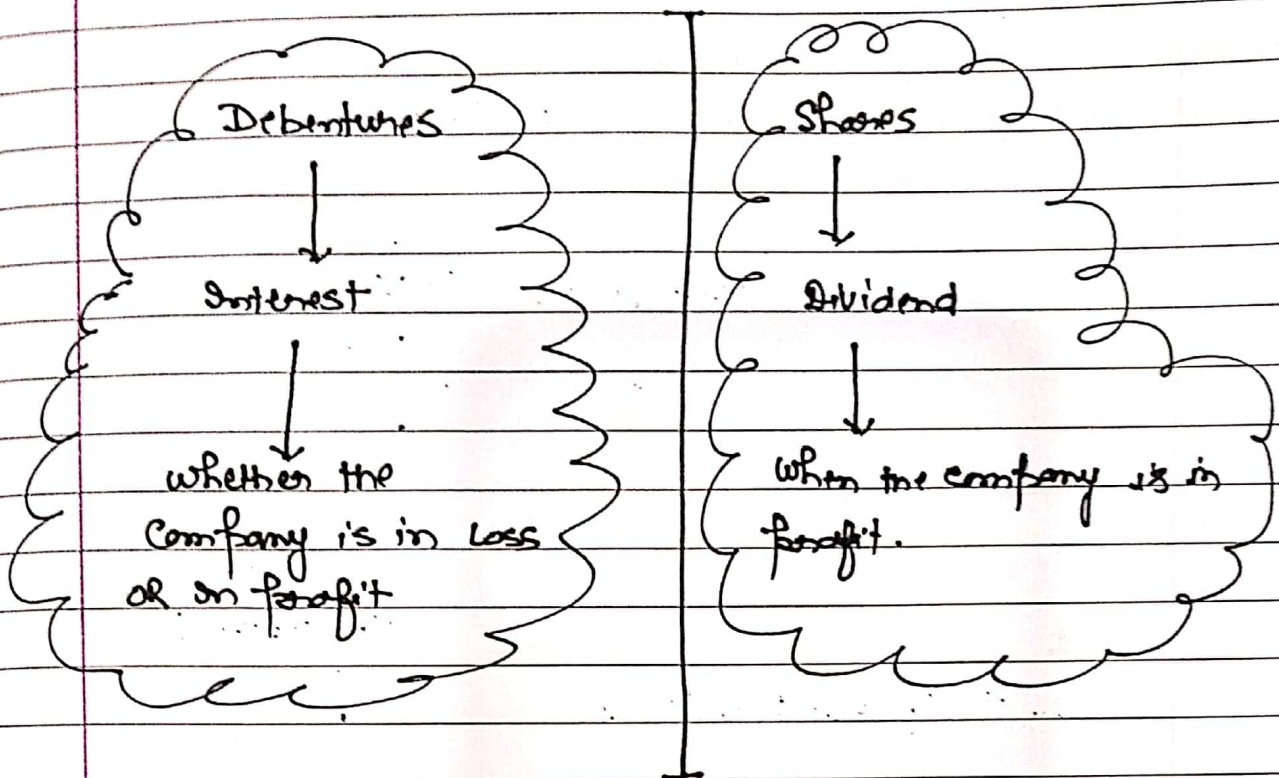 Debentures
Interest
whether the
Company is in Loss
OR in profit
Shares
Dividend
When the company is in
profit.